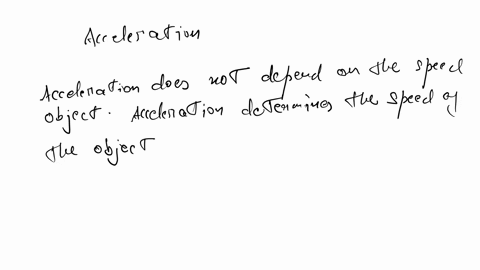 Acceleration
Acceleration does not depend on the speed
object. Acceleration determines the speed of
the object